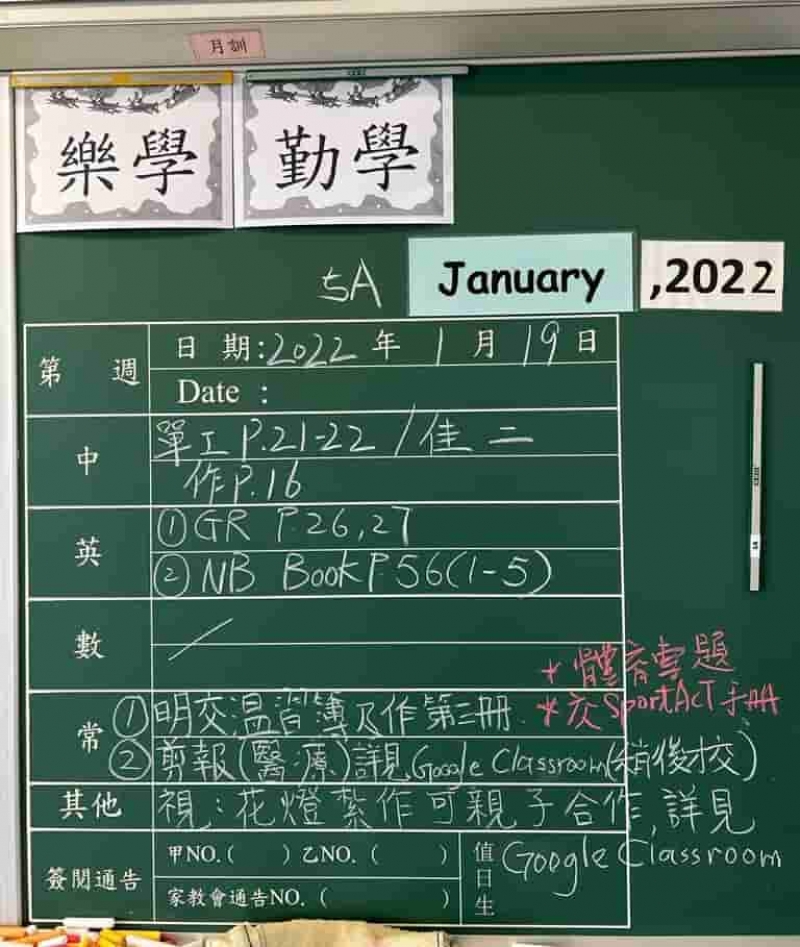 月訓
樂學 勤學
5A January ,2022
第 週 日 期:2022 年 1 月 19 日
Date :
中 單工 P.21-22 / 佳 二
作 P.16
英 ① GR P.26,27
② NB Book P.56(1-5)
數 /
* 體育專題
* 交 SportAct 手冊
常 ① 明交溫習簿及作第三冊
② 剪報(醫療)詳見 Google Classroom(稍後交)
其他 視:花燈紮作可親子合作,詳見
Google Classroom
簽閱通告 甲NO.( ) 乙NO.( ) 值日生
家教會通告NO.( )